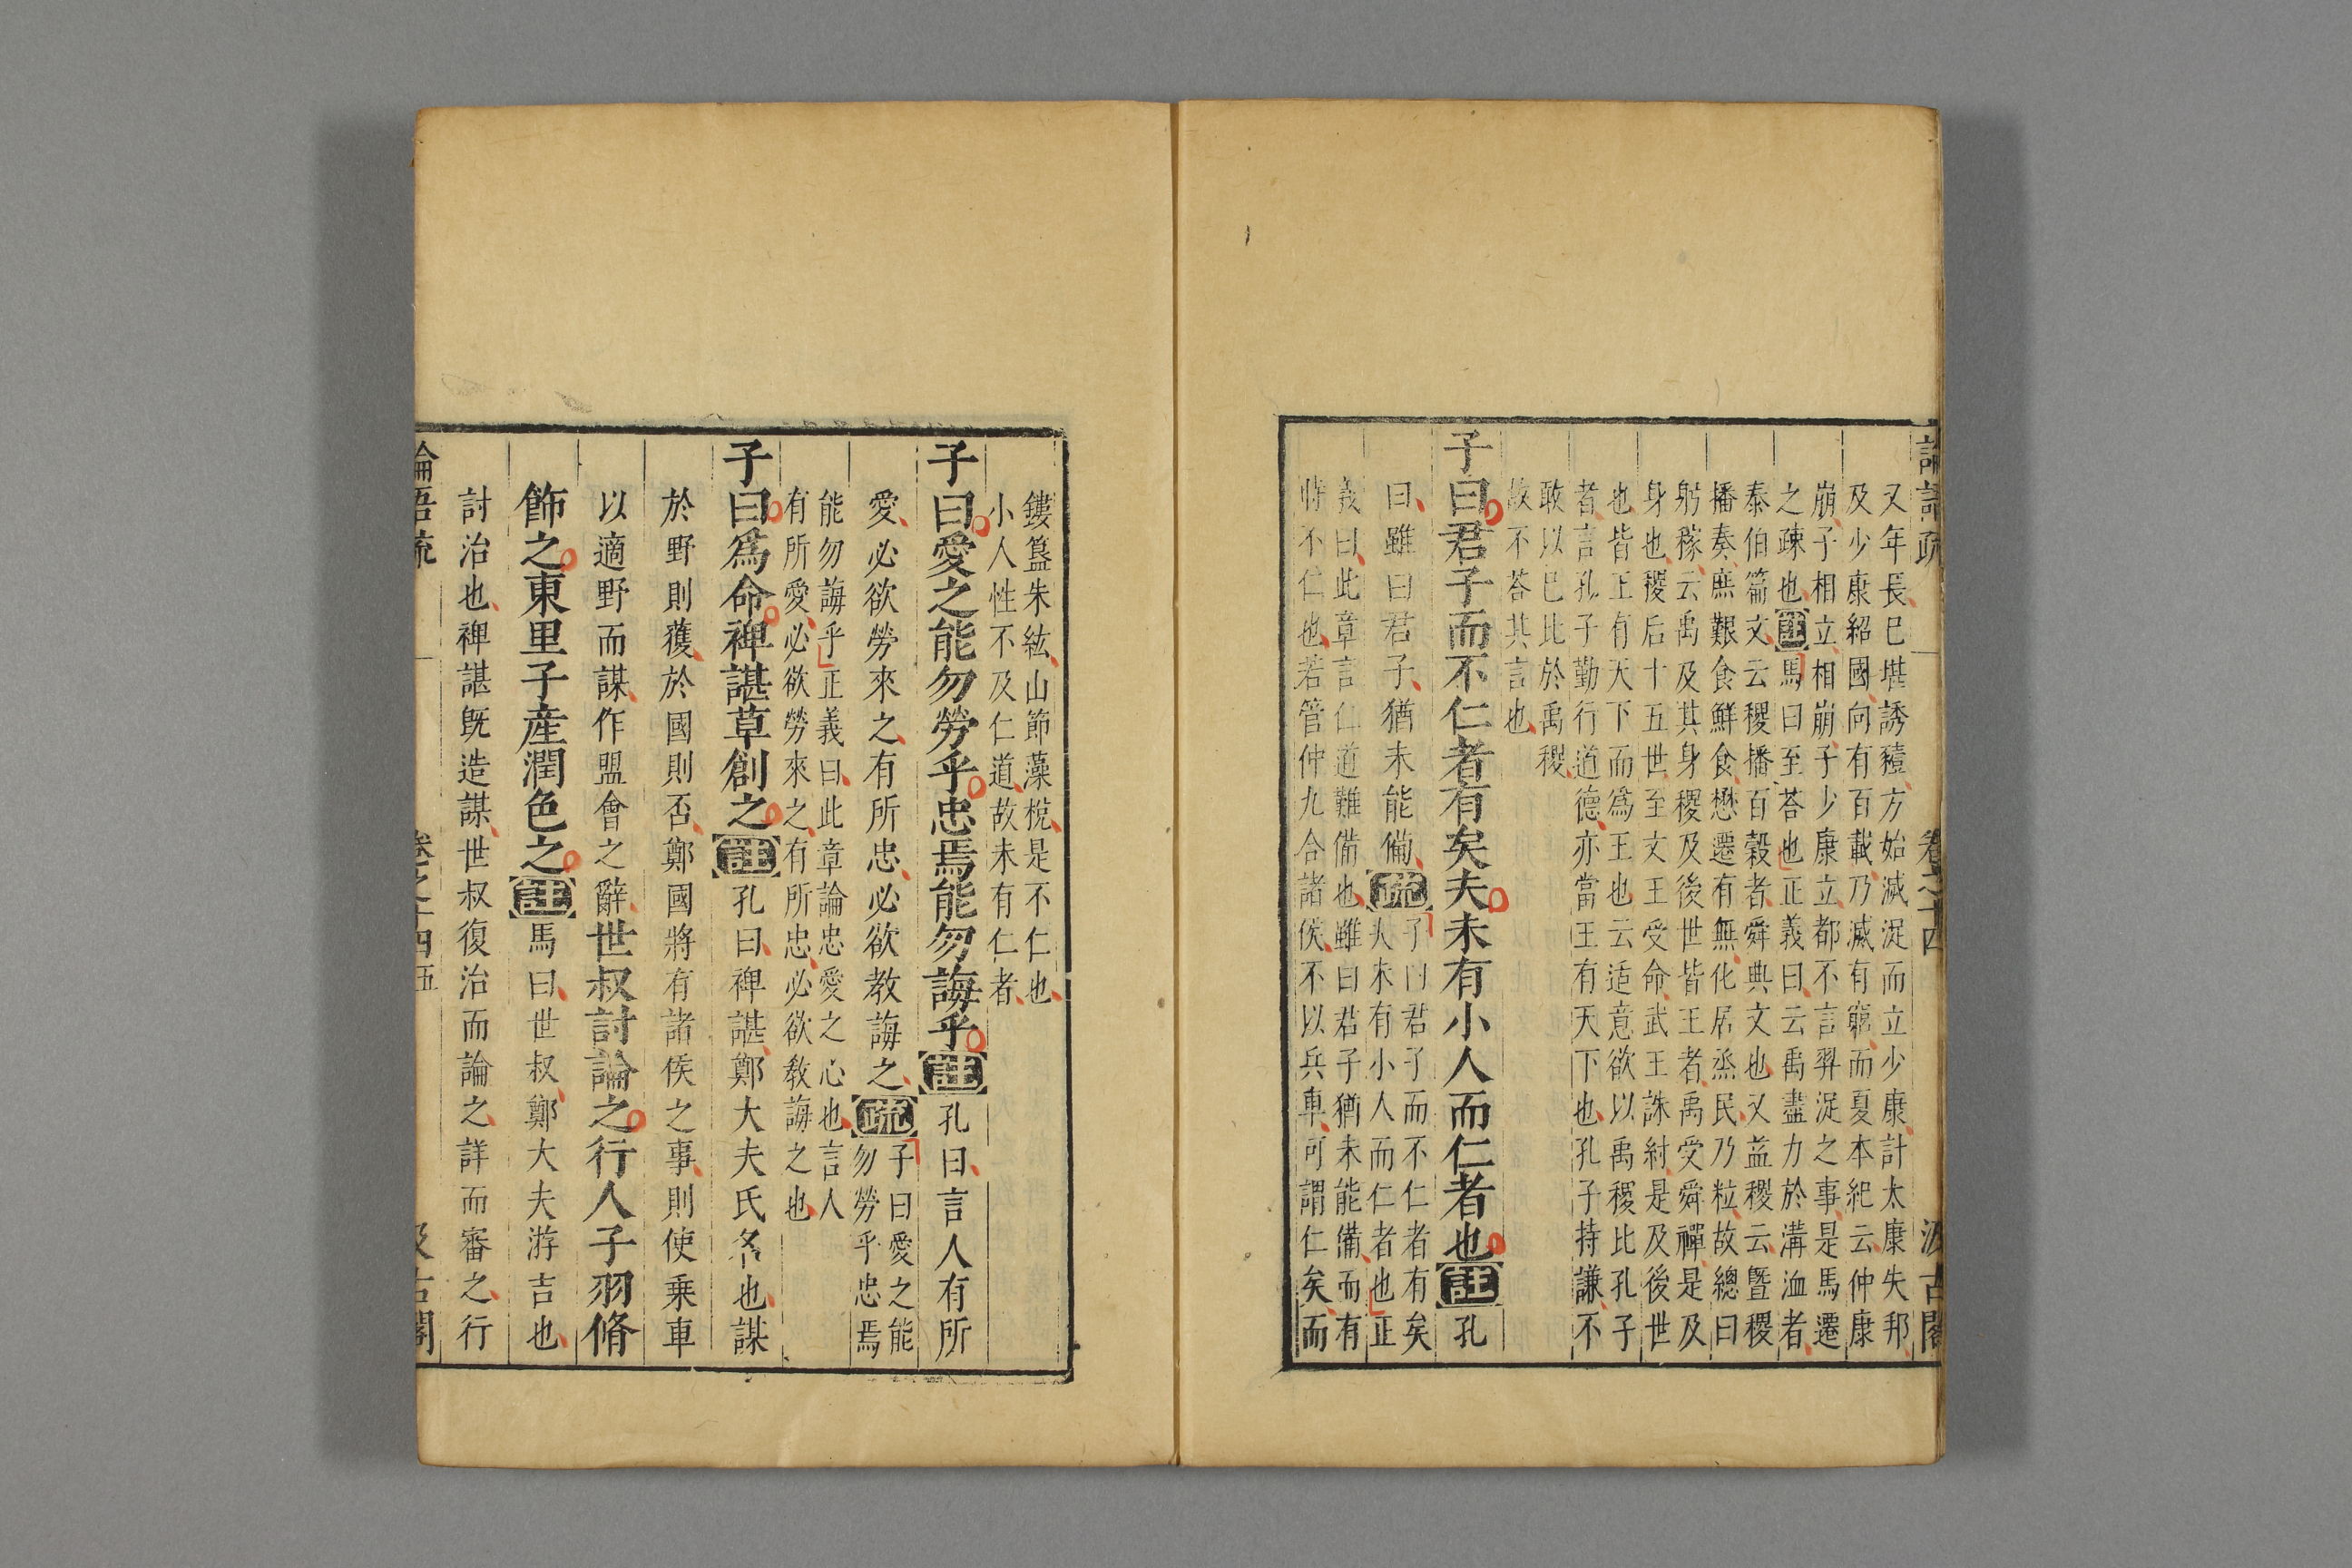 論語疏 卷之十四 汲古閣
又年長已堪誘豷方始滅浞而立少康計太康失邦
及少康紹國向有百載乃滅有窮而夏本紀云仲康
崩子相立相崩子少康立都不言羿浞之事是馬遷
之疎也註馬曰至荅也正義曰云禹盡力於溝洫者
泰伯篇文云稷播百穀者舜典文也又益稷云曁稷
播奏庶艱食鮮食懋遷有無化居烝民乃粒故總曰
躬稼云禹及其身稷及後世皆王者禹受舜禪是及
身也稷后十五世至文王受命武王誅紂是及後世
也皆王有天下而爲王也云适意欲以禹稷比孔子
者言孔子勤行道德亦當王有天下也孔子持謙不
敢以已比於禹稷
故不荅其言也
子曰君子而不仁者有矣夫未有小人而仁者也註孔
曰雖曰君子猶未能備疏子曰君子而不仁者有矣
夫未有小人而仁者也正
義曰此章言仁道難備也雖曰君子猶未能備而有
時不仁也若管仲九合諸侯不以兵車可謂仁矣而
鏤簋朱紘山節藻梲是不仁也
小人性不及仁道故未有仁者
子曰愛之能勿勞乎忠焉能勿誨乎註孔曰言人有所
愛必欲勞來之有所忠必欲教誨之疏子曰愛之能
勿勞乎忠焉
能勿誨乎正義曰此章論忠愛之心也言人
有所愛必欲勞來之有所忠必欲敎誨之也
子曰爲命裨諶草創之註孔曰裨諶鄭大夫氏名也謀
於野則獲於國則否鄭國將有諸侯之事則使乗車
以適野而謀作盟會之辭世叔討論之行人子羽脩
飾之東里子產潤色之註馬曰世叔鄭大夫游吉也
討治也裨諶旣造謀世叔復治而論之詳而審之行
論語疏 卷之十四 五 汲古閣